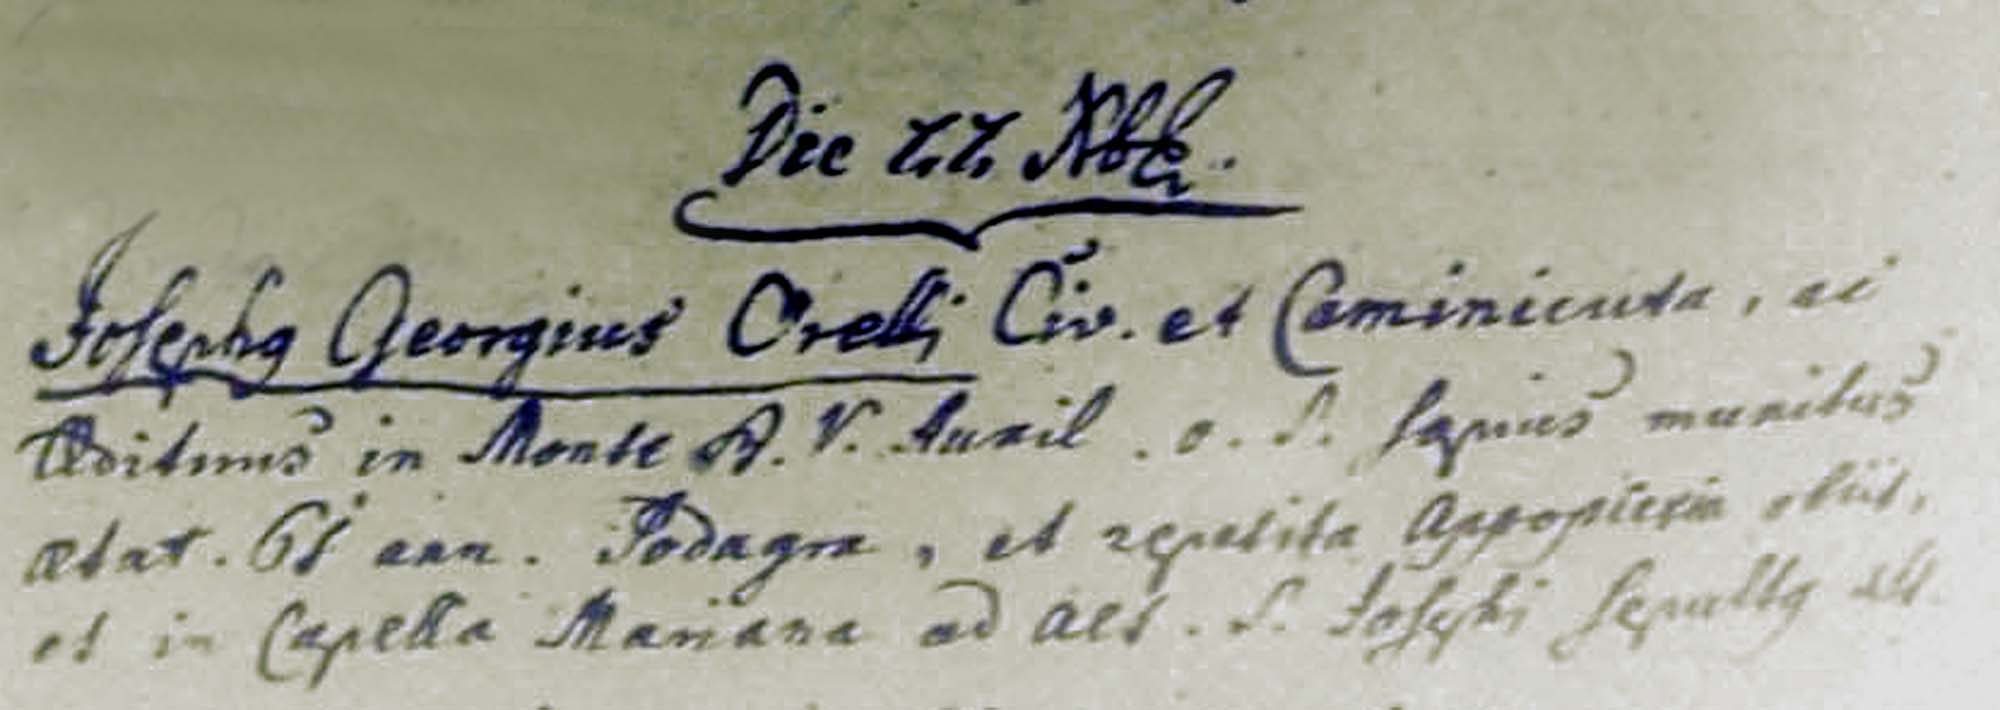 Die 22 Xbr.
Josephq Georgius Orelli Civ. et Caminicista, ac
Ædituus in Monte B. V. Auxil. o. S. sæpius munitus
ætat. ann. Podagra, et repetita Appoplexia obiit,
et in Capella Mariana ad Alt. S. Josephi sepultq est.